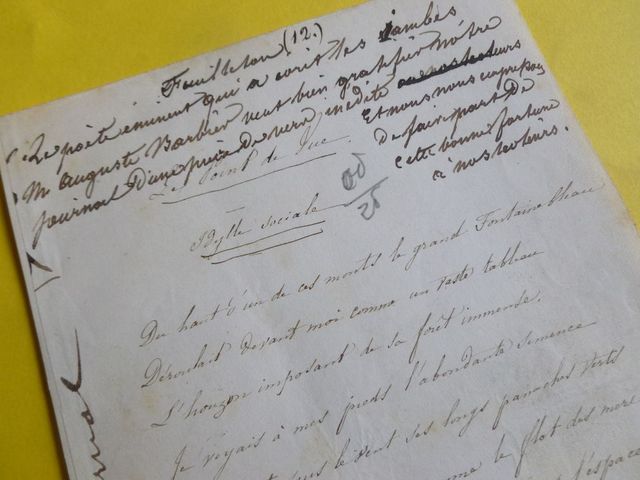 Feuilleton (12.)
Le poète éminent qui a écrit les iambes
Mr Auguste Barbier veut bien gratifier nôtre
journal d'une pièce de vers inédite
Et nous nous empressons
de faire part de
cette bonne fortune
à nos lecteurs.
Le Point de Vue
Idylle sociale
Du haut d'un de ces monts le grand Fontainebleau
Déroulait devant moi comme un vaste tableau
L'horizon imposant de sa forêt immense.
Je voyais à mes pieds l'abondante semence
le vent ses longs panaches verts
le flot des mers
l'espace